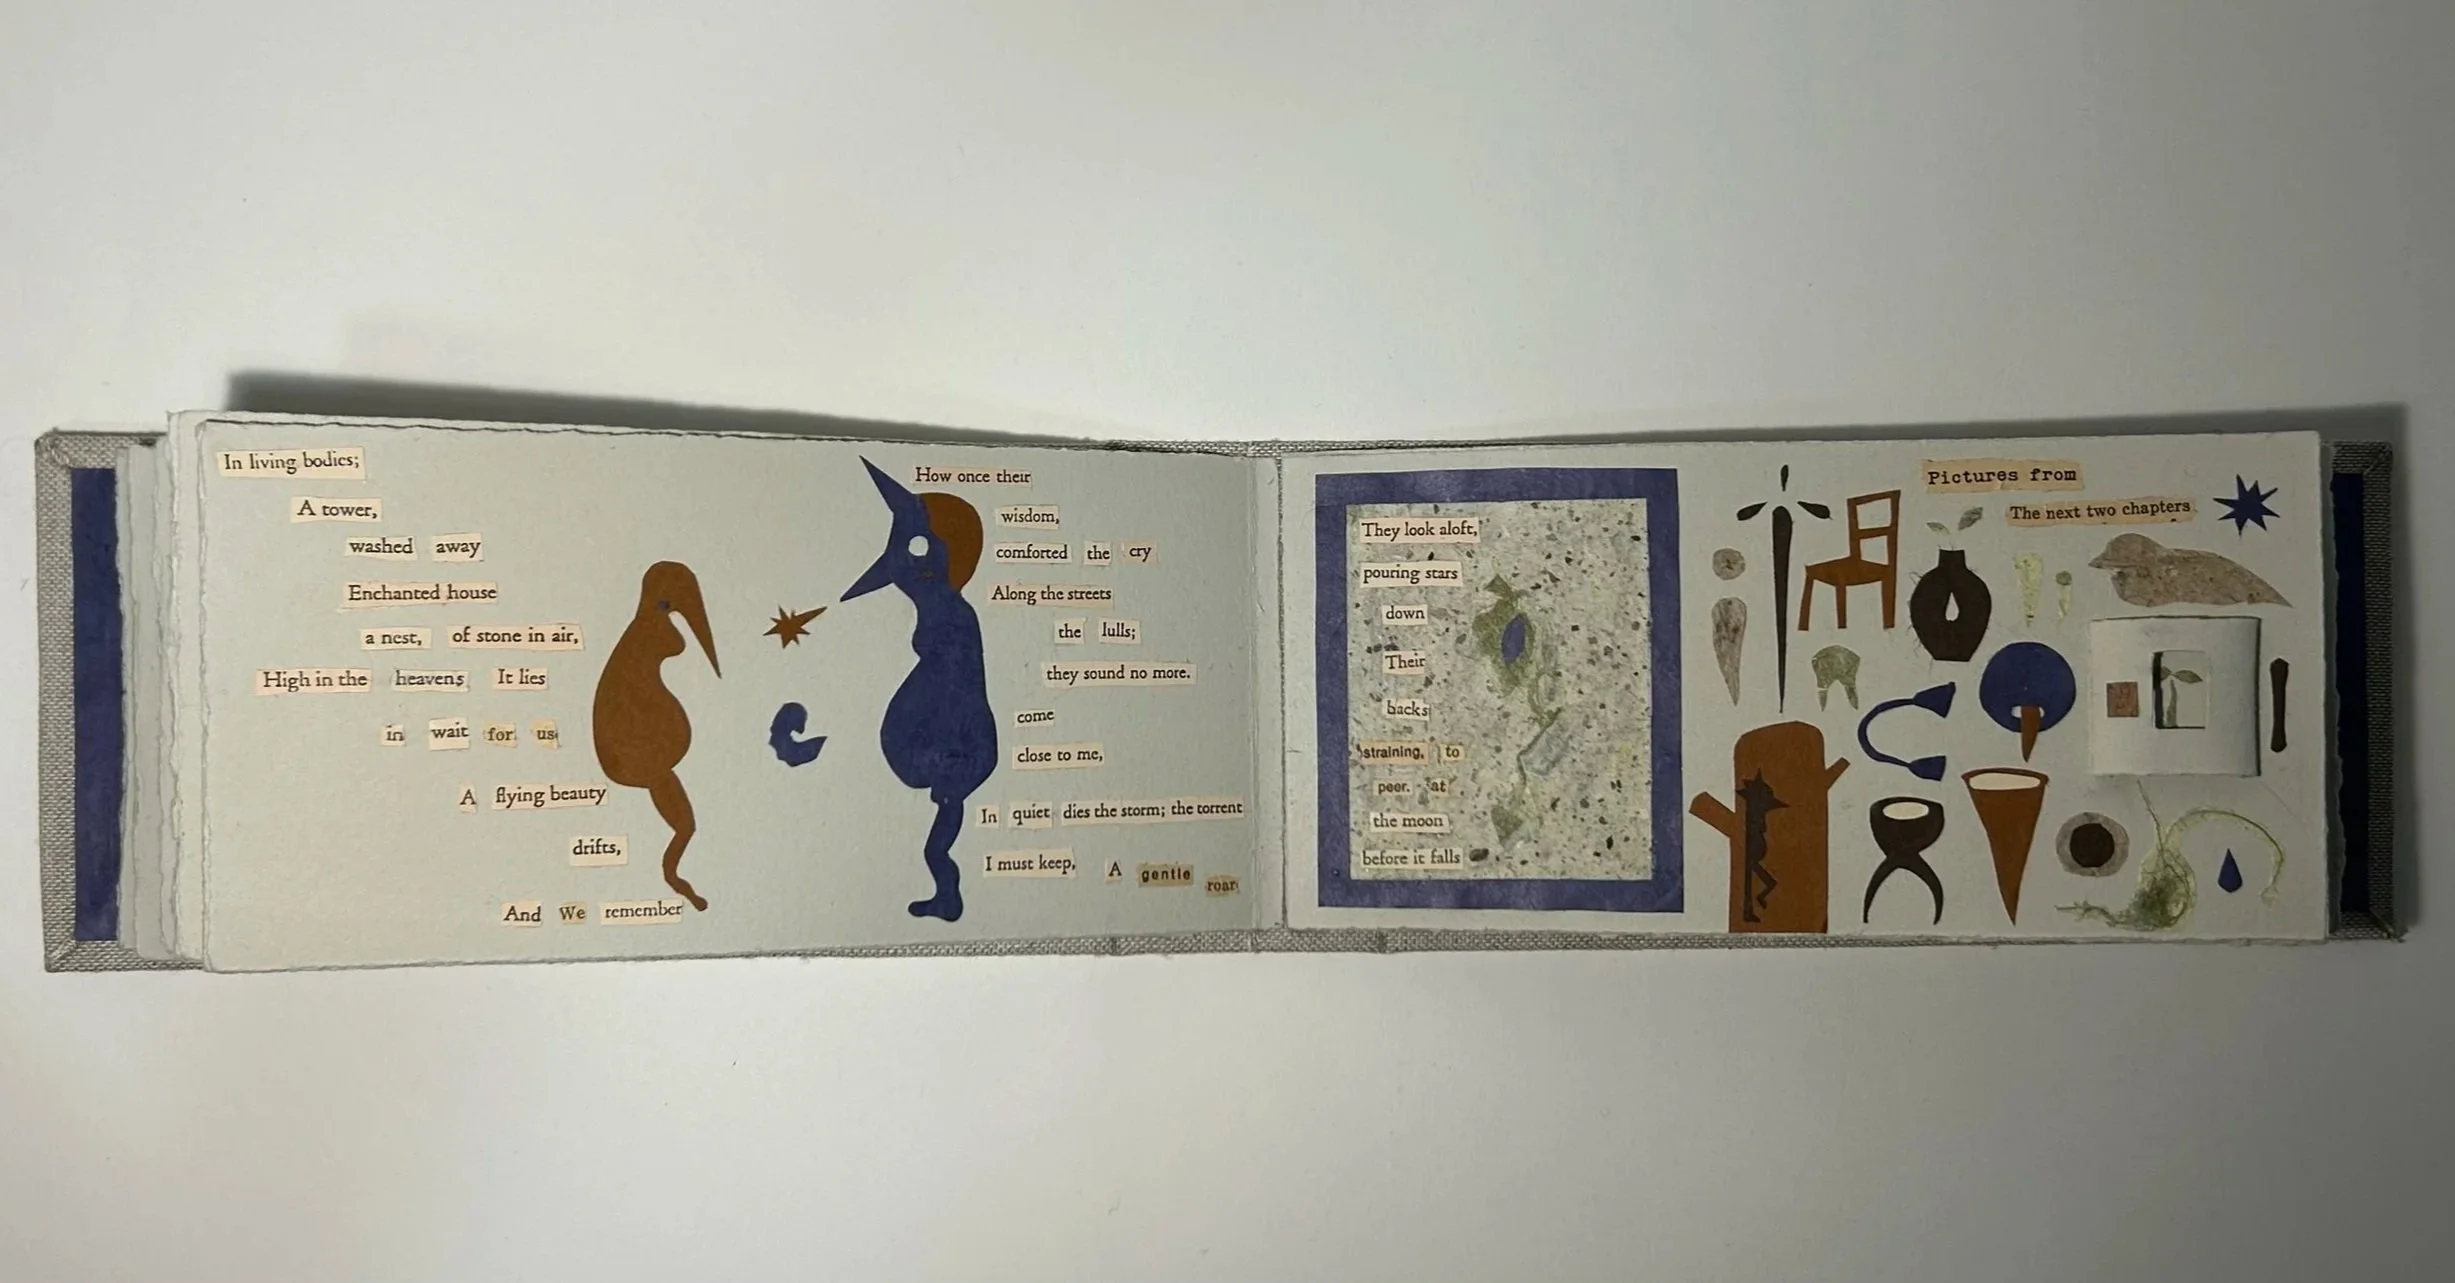 In living bodies;
A tower,
washed away
Enchanted house
a nest, of stone in air,
High in the heavens It lies
in wait for us
A flying beauty
drifts,
And We remember
How once their
wisdom,
comforted the cry
Along the streets
the lulls;
they sound no more.
come
close to me,
In quiet dies the storm; the torrent
I must keep, A gentle roar
They look aloft,
pouring stars
down
Their
backs
straining, to
peer. at
the moon
before it falls
Pictures from
The next two chapters